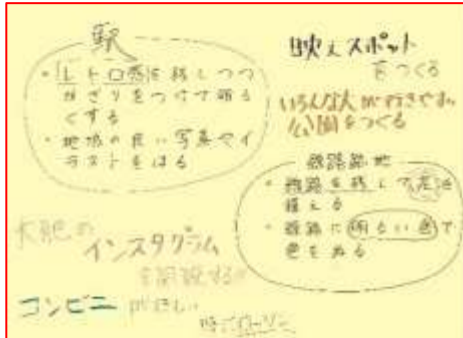 駅
・レトロ感を残しつつ
かざりをつけて明る
くする
・地域の良い写真やイ
ラストをはる
映えスポット
をつくる
いろんな人が行きやすい
公園をつくる
線路跡地
・線路を残して花を
植える
・線路に明るい色で
色をぬる
大肥の
インスタグラム
を開設する!!
コンビニ がほしい
特にローソン